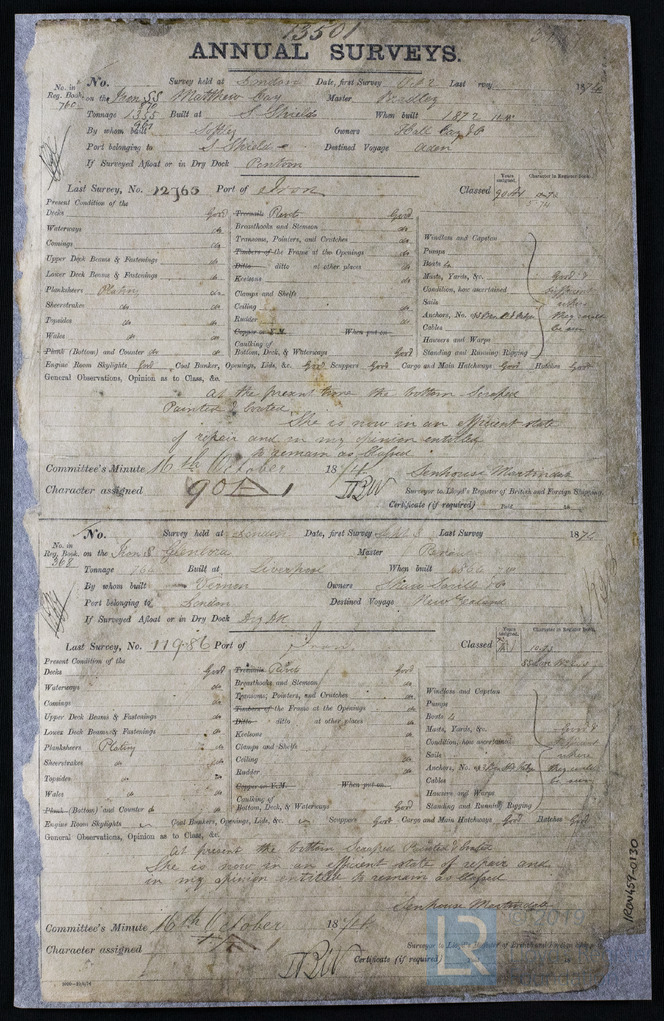 13501
ANNUAL SURVEYS.
No. in Reg. Book. 760 No. Survey held at London Date, first Survey Oct 2 Last Survey 1874
on the Iron SS Matthew Cay Master Bradley
Tonnage Built at S Shields When built 1872
By whom built Softley Owners Hall
Port belonging to S Shields Destined Voyage Aden
If Surveyed Afloat or in Dry Dock
Last Survey, No. 12363 Port of Iron Classed Years assigned. Character in Register Book.
Present Condition of the
Decks Good
Waterways do
Comings do
Upper Deck Beams & Fastenings do
Lower Deck Beams & Fastenings do
Planksheers Plating do
Sheerstrakes do do
Topsides do do
Wales do do
Plank (Bottom) and Counter do do
Treenails Rivets Good
Breasthooks and Stemson do
Transoms, Pointers, and Crutches do
Timbers of the Frame at the Openings do
Ditto ditto at other places do
Keelsons do
Clamps and Shelfs
Ceiling do
Rudder do
Copper or Y.M. When put on
Caulking of
Bottom, Deck, & Waterways Good
Windlass and Capstan
Pumps
Boats
Masts, Yards, &c. Good &
Condition, how ascertained efficient
Sails where
Anchors, No. they could
Cables be seen
Hawsers and Warps
Standing and Running Rigging
Engine Room Skylights Good Coal Bunker, Openings, Lids, &c. Good Scuppers Good Cargo and Main Hatchways Good Hatches Good
General Observations, Opinion as to Class, &c.
At the present time the bottom Scraped
Painted & coated.
She is now in an efficient state
of repair and in my opinion entitled
to remain as Classed
Committee's Minute 16th October 1874 Senhouse Martindale
Character assigned 90 A 1 Surveyor to Lloyd's Register of British and Foreign Shipping.
Certificate (if required)
No. in Reg. Book. 368 No. Survey held at London Date, first Survey Last Survey 1874
on the Iron S Glenlora Master
Tonnage Built at Liverpool When built
By whom built Vernon Owners Shaw Savill & Co
Port belonging to London Destined Voyage New Zealand
If Surveyed Afloat or in Dry Dock Dry Dk
Last Survey, No. 11986 Port of Iron Classed Years assigned. Character in Register Book.
Present Condition of the
Decks Good
Waterways do
Comings do
Upper Deck Beams & Fastenings do
Lower Deck Beams & Fastenings do
Planksheers Plating do
Sheerstrakes do do
Topsides do do
Wales do do
Plank (Bottom) and Counter do do
Treenails Rivets Good
Breasthooks and Stemson do
Transoms, Pointers, and Crutches do
Timbers of the Frame at the Openings do
Ditto ditto at other places do
Keelsons do
Clamps and Shelfs do
Ceiling do
Rudder do
Copper or Y.M. When put on
Caulking of
Bottom, Deck, & Waterways Good
Windlass and Capstan
Pumps
Boats
Masts, Yards, &c. Good &
Condition, how ascertained efficient
Sails where
Anchors, No. they could
Cables be seen
Hawsers and Warps
Standing and Running Rigging
Engine Room Skylights Coal Bunkers, Openings, Lids, &c. Scuppers Good Cargo and Main Hatchways Good Hatches Good
General Observations, Opinion as to Class, &c.
At present the bottom Scraped Painted & coated
She is now in an efficient state of repair and
in my opinion entitled to remain as Classed
Senhouse Martindale
Committee's Minute 16th October 1874
Surveyor to Lloyd's Register of British and Foreign Shipping
Character assigned
Certificate (if required)
LR
IRON459-0130